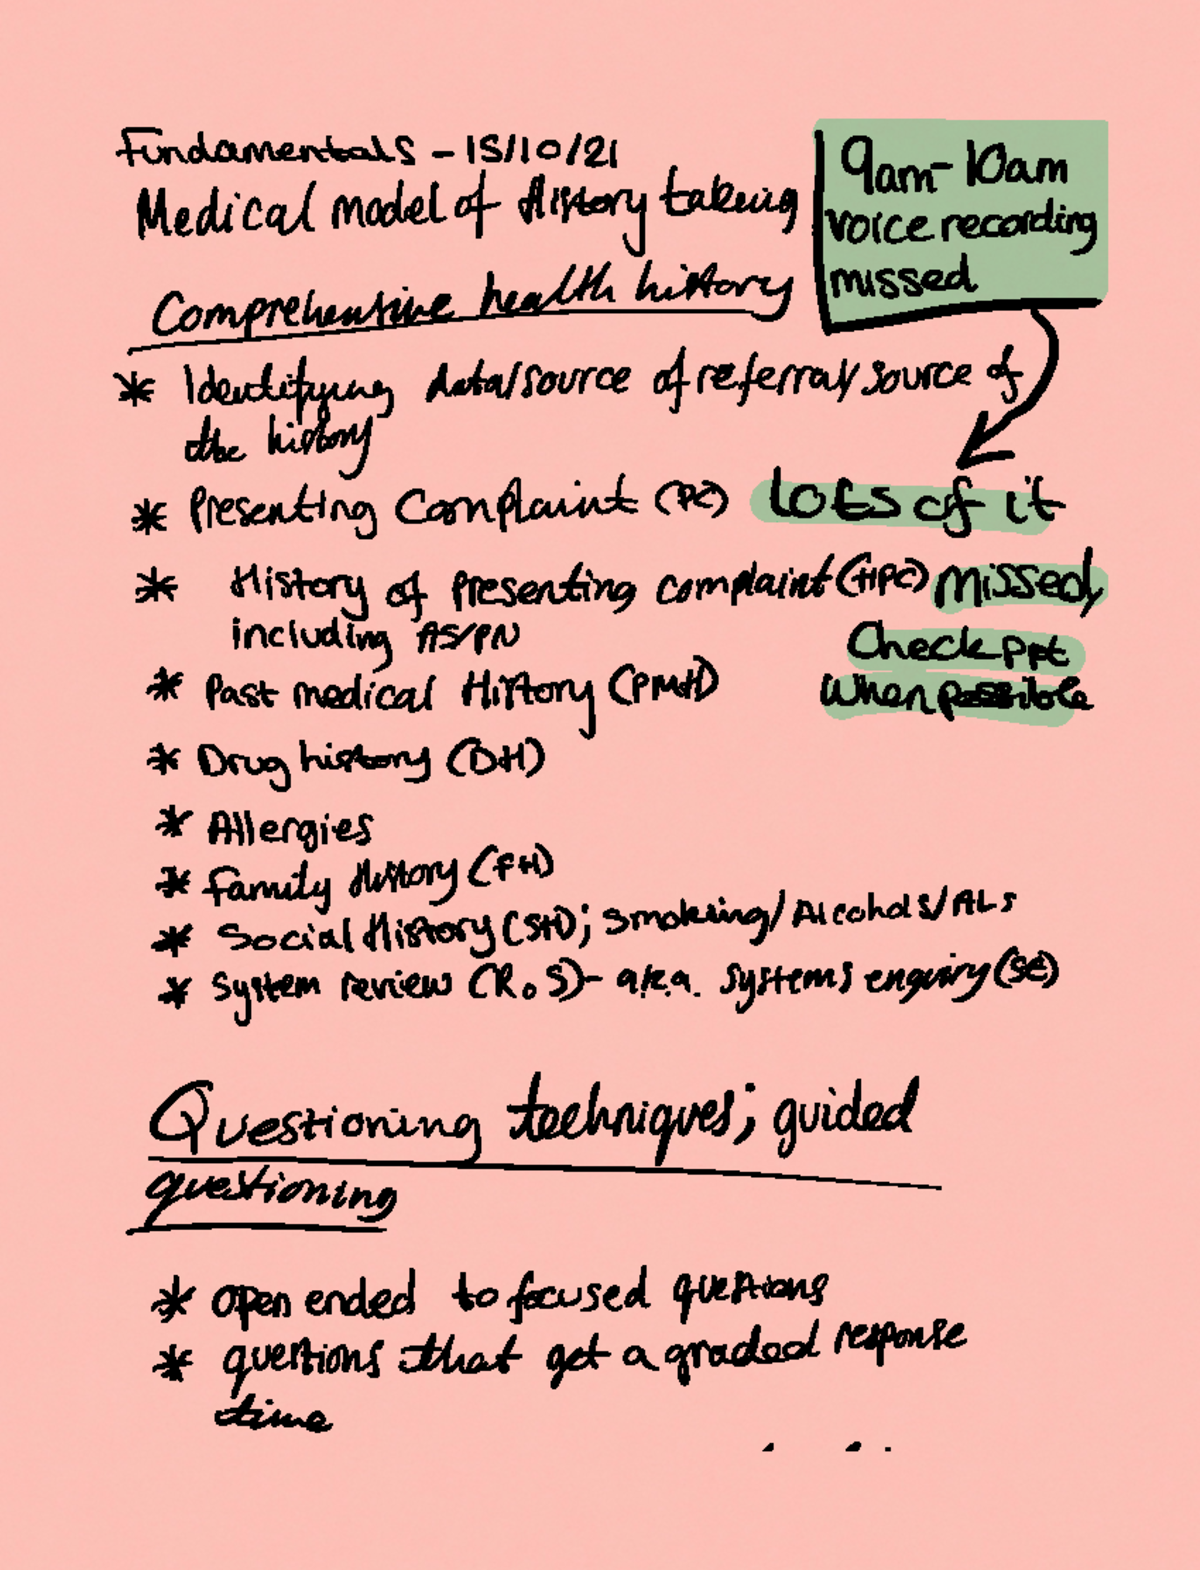 Fundamentals - 15/10/21
Medical model of History taking
9am-10am
voice recording
missed
Comprehensive health history
* Identifying data/source of referral/source of
the history
* Presenting Complaint (PC)
lots of it
* History of presenting complaint (HPC)
missed,
including AS/PN
Check ppt
when possible
* Past medical History (PMH)
* Drug history (DH)
* Allergies
* Family History (FH)
* Social History (SH); smoking/Alcohols/ALs
* System review (R.S) - a.k.a. systems enquiry (SE)
Questioning techniques; guided
questioning
* open ended to focused questions
* questions that get a graded response
time